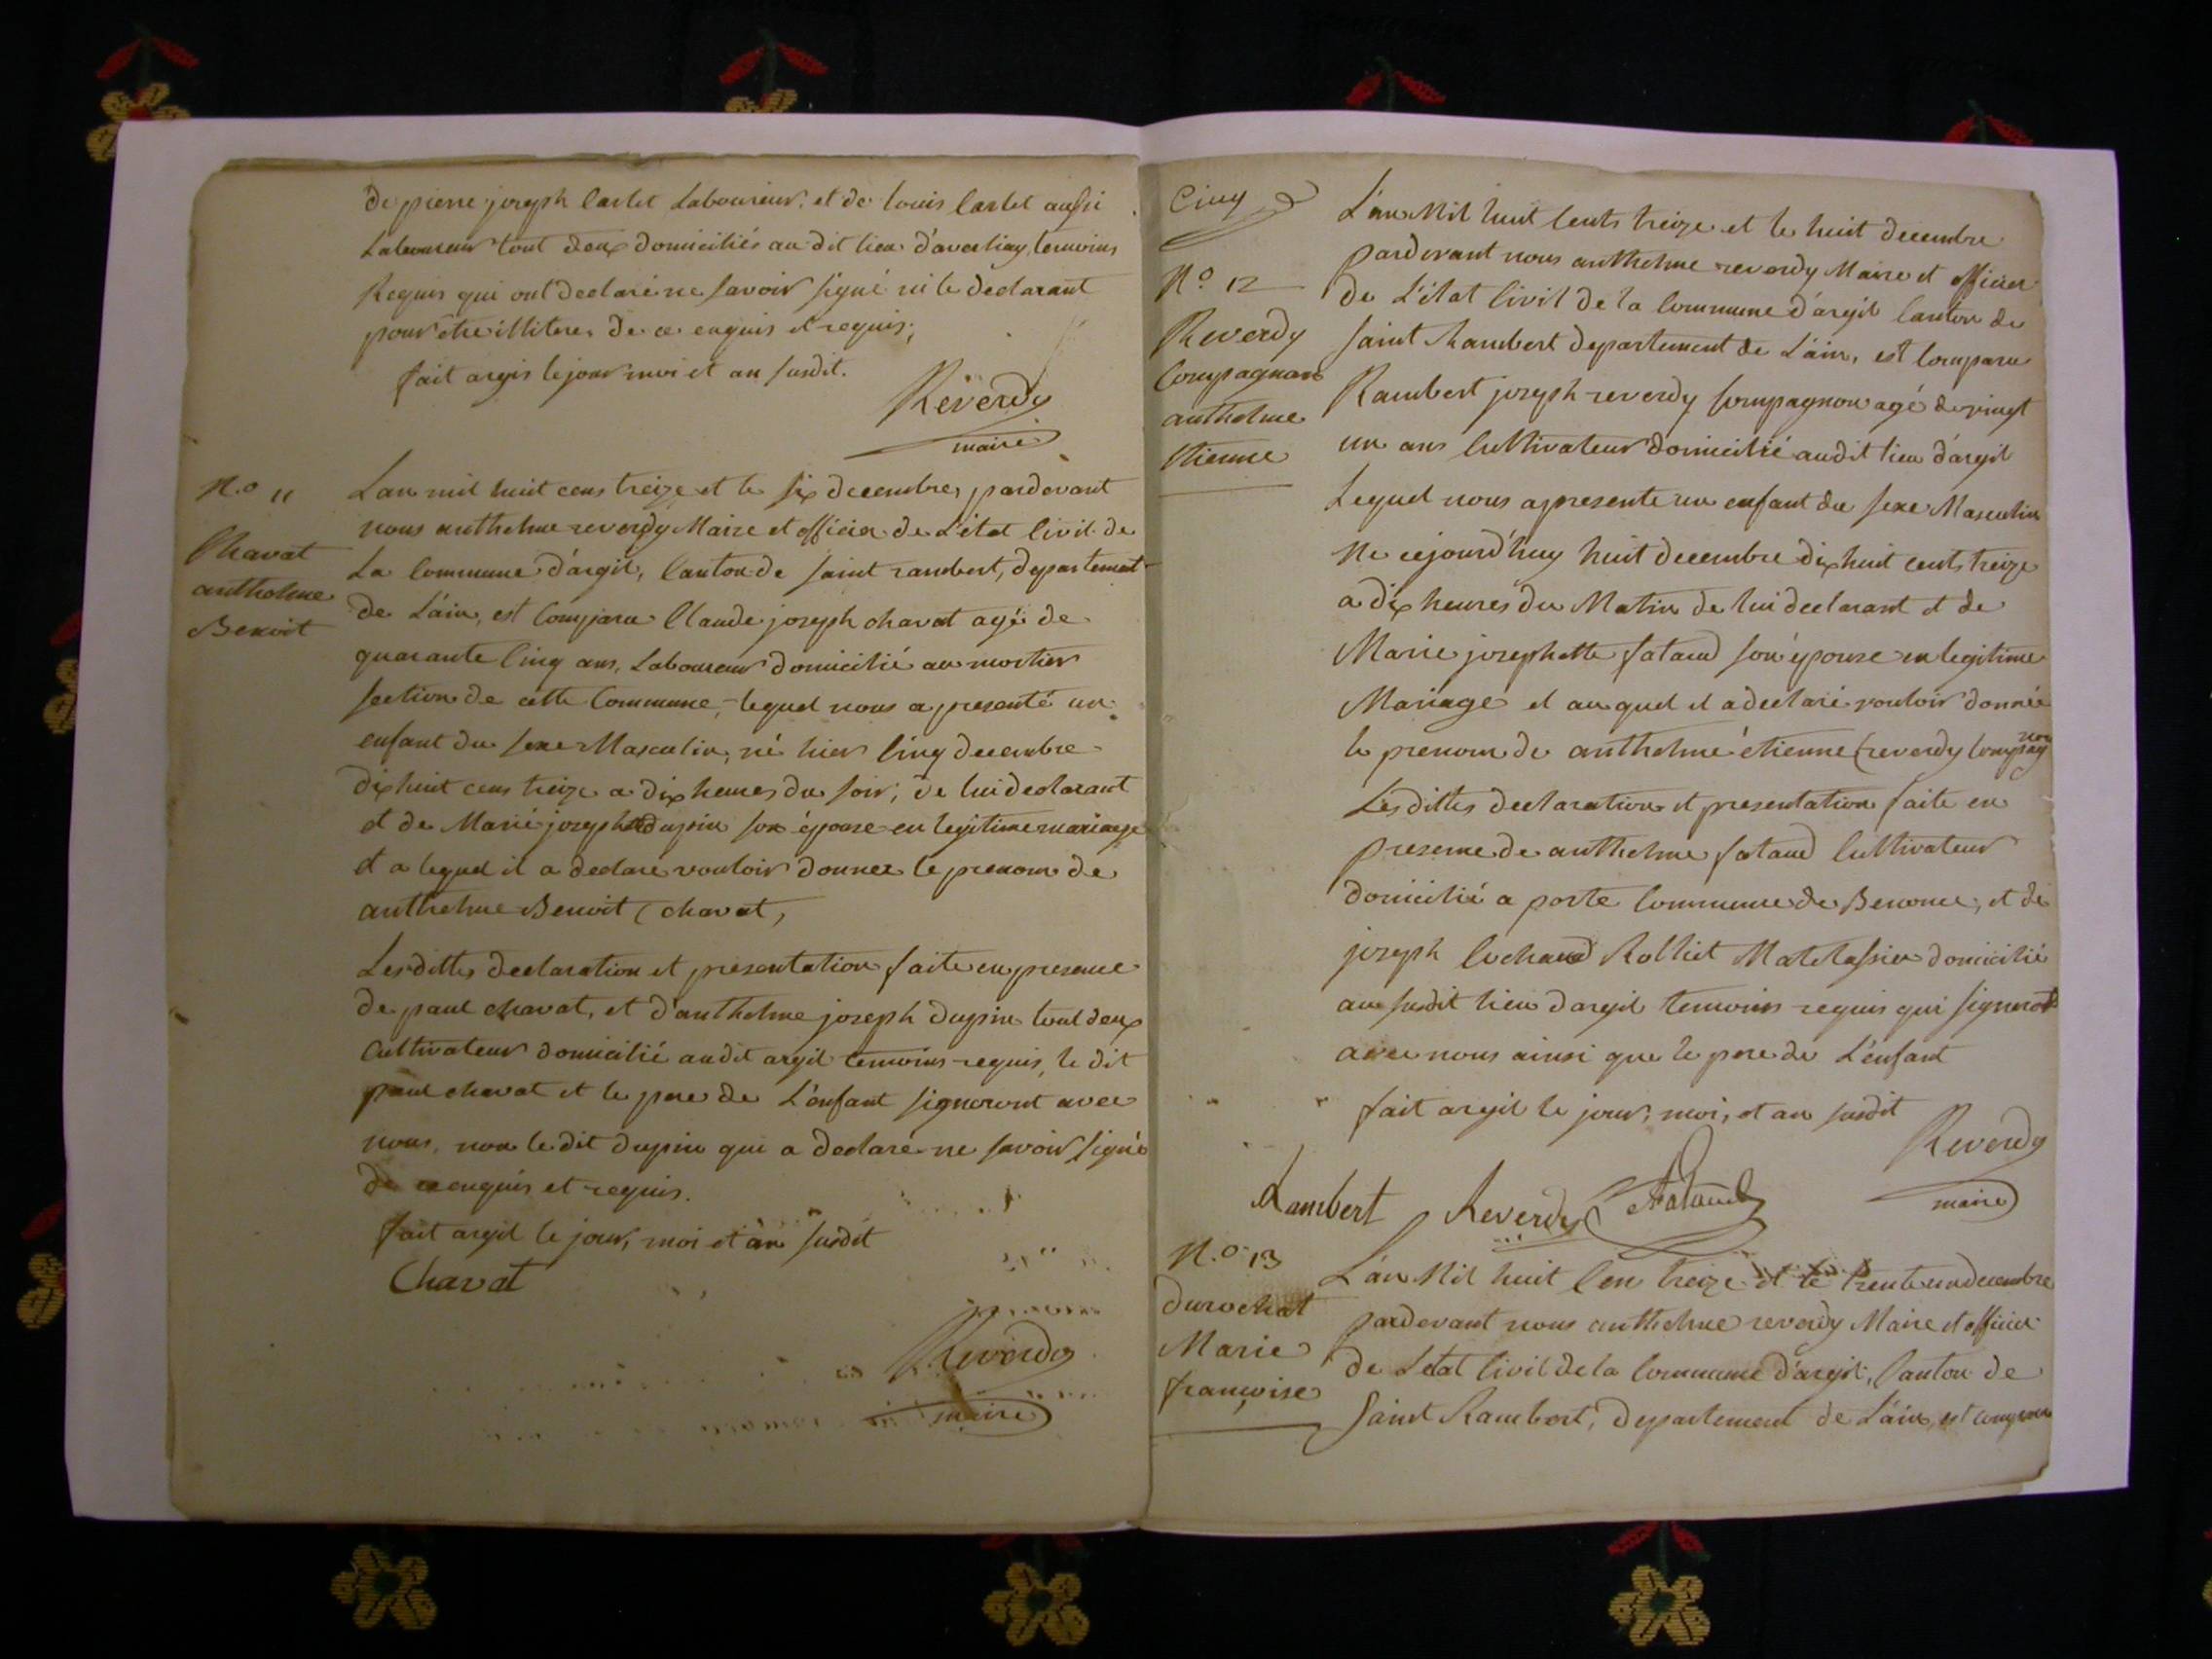 de pierre joseph Carlet Laboureur, et de louis Carlet aussi
Laboureur tout deux domiciliés au dit lieu d'averliay temoins
Requis qui ont declaré ne savoir signé ni le declarant
pour etre illiteres de ce enquis et requis,
fait argis le jour moi et an susdit.
Reverdy
maire
N.o 11
Chavat
anthelme
Benoit
Lan mil huit cens treize et le six decembre, pardevant
nous anthelme reverdy Maire et officier de L'etat Civil de
La Commune d'argil, Canton de saint rambert, departement
de L'ain, est Comparu Claude joseph chavat agé de
quarante Cinq ans, Laboureur domicilié au mortier
section de cette Commune, lequel nous a presenté un
enfant du sexe Masculin, né hier Cinq decembre
dix huit cens treize a dix heures du soir, de lui declarant
et de Marie josephte dupin son épouse en legitime mariage
et a lequel il a declaré vouloir donner le prenom de
anthelme Benoit (chavat,
Lesdittes declaration et presentation faite en presence
de paul chavat, et d'anthelme joseph dupin tout deux
Cultivateur domicilié audit argil temoins requis, le dit
paul chavat et le pere de L'enfant signeront avec
nous, non le dit dupin qui a declaré ne savoir signé
de ce enquis et requis.
fait argil le jour, moi et an susdit
Chavat
Reverdy
maire
Cinq
N.o 12
Reverdy
Compagnon
anthelme
etienne
L'an Mil huit Cents treize et le huit decembre
pardevant nous anthelme reverdy Maire et officier
de L'état Civil de la Commune d'argil Canton de
saint Rambert departement de L'ain, est Comparu
Rambert joseph reverdy Compagnon agé de vingt
un ans Cultivateur domicilié audit lieu d'argil
Lequel nous a presenté un enfant du sexe Masculin
Né cejourd'huy huit decembre dix huit cents treize
a dix heures du Matin de lui declarant et de
Marie josephette fataud son épouse en legitime
Mariage et au quel il a declaré vouloir donnée
le prenom de anthelme étienne (reverdy Compagnon
Lesdittes declaration et presentation faite en
presence de anthelme fataud Cultivateur
domicilié a porte Commune de Benonce, et de
joseph Cuchaud Rolliet Matelassier domicilié
au susdit lieu dargil temoins requis qui signeront
avec nous ainsi que le pere de L'enfant
fait argil le jour, moi, et an susdit
Reverdy
maire
Rambert Reverdy Fataud
N.o 13
durochat
Marie
françoise
L'an Mil huit Cen treize et le trente un decembre
pardevant nous anthelme reverdy Maire et officier
de Letat Civil de la Commune d'argil, Canton de
Saint Rambert, departement de L'ain, est comparu